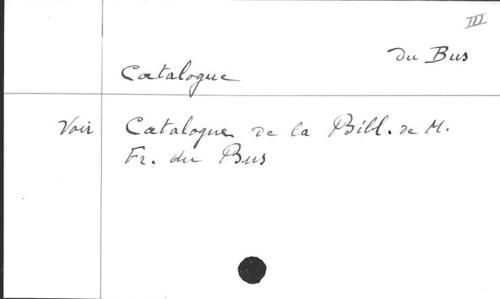 III
du Bus
Catalogue
Voir Catalogue de la Bibl. de M.
Fr. du Bus